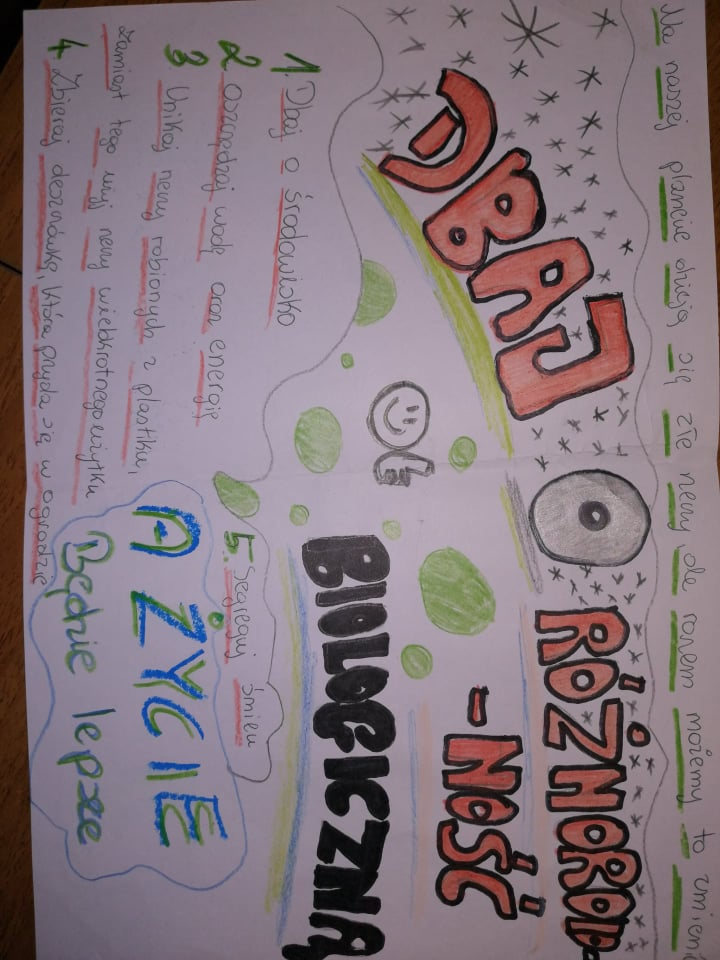 Na naszej planecie dzieją się złe rzeczy, ale razem możemy to zmienić
DBAJ
O
RÓŻNOROD-
-NOŚĆ
BIOLOGICZNĄ
1. Dbaj o środowisko
2. oszczędzaj wodę oraz energię
3. Unikaj rzeczy robionych z plastiku,
Zamiast tego użyj rzeczy wielokrotnego użytku
4. Zbieraj deszczówkę, która przyda się w ogrodzie
5. Segreguj śmieci
A ŻYCIE
Będzie lepsze